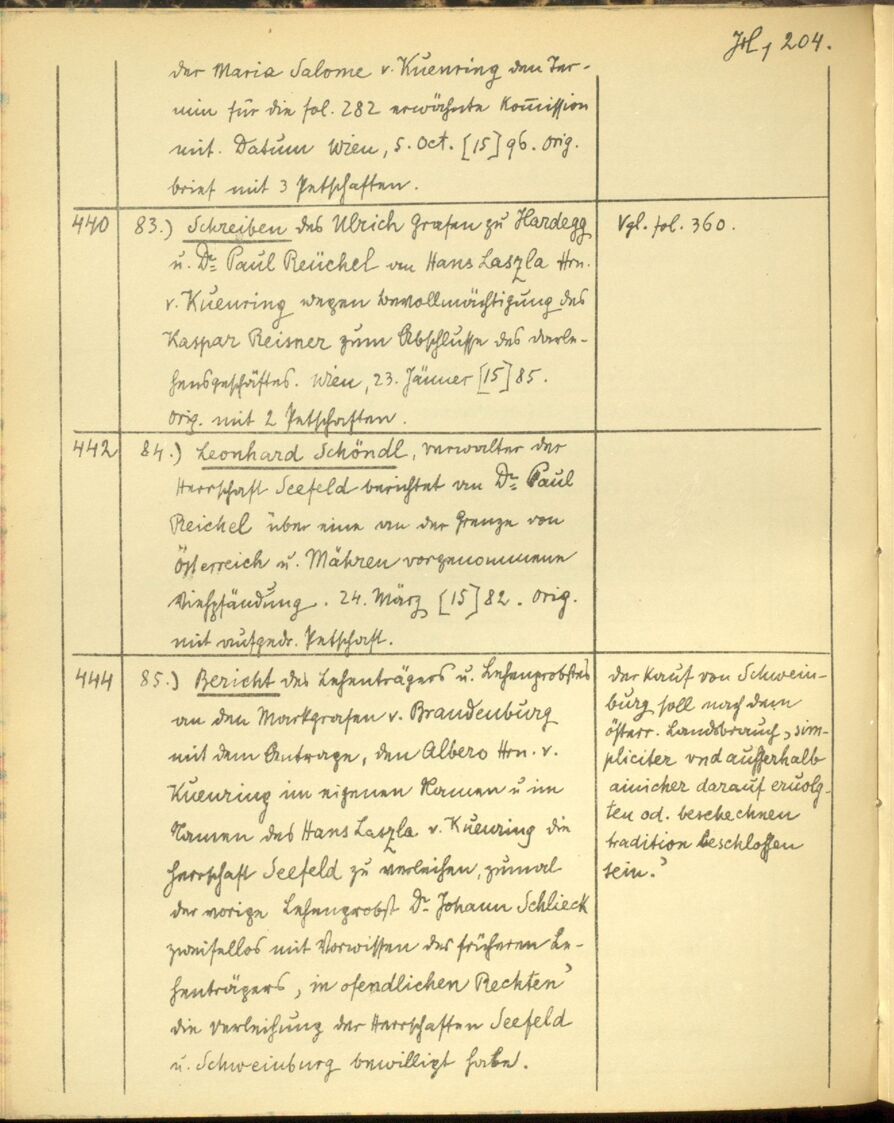 Hl, 204.
der Maria Salome v. Kuenring den Ter-
min für die fol. 282 erwähnte Kom̅ission
mit. Datum Wien, 5. Oct. [15]96. Orig.
brief mit 3 Petschaften.
440 83.) Schreiben des Ulrich Grafen zu Hardegg
u. Dr. Paul Reüchel an Hans Laszla Hrn.
v. Kuenring wegen Bevollmächtigung des
Kaspar Reisner zum Abschlusse des Darle-
hensgeschäftes. Wien, 23. Jänner [15]85.
Orig. mit 2 Petschaften.
Vgl. fol. 360.
442 84.) Leonhard Schöndl, Verwalter der
Herrschaft Seefeld berichtet an Dr. Paul
Reichel über eine an der Grenze von
Österreich u. Mähren vorgenommene
Viehpfändung. 24. März [15]82. Orig.
mit aufgedr. Petschaft.
444 85.) Bericht des Lehenträgers u. Lehenprobstes
an den Markgrafen v. Brandenburg
mit dem Antrage, den Albero Hrn. v.
Kuenring im eigenen Namen u im
Namen des Hans Laszla v. Kuenring die
Herrschaft Seefeld zu verleihen, zumal
der vorige Lehenprobst Dr. Johann Schlieck
zweifellos mit Vorwissen des früheren Le-
henträgers, in ofendlichen Rechten'
die Verleihung der Herrschaften Seefeld
u. Schweinburg bewilligt habe.
der Kauf von Schwein-
burg soll nach dem
österr. Landsbrauch, sim-
pliciter vnd ausserhalb
ainicher darauf eruolg-
ten od. beschechnen
tradition beschlossen
sein.'